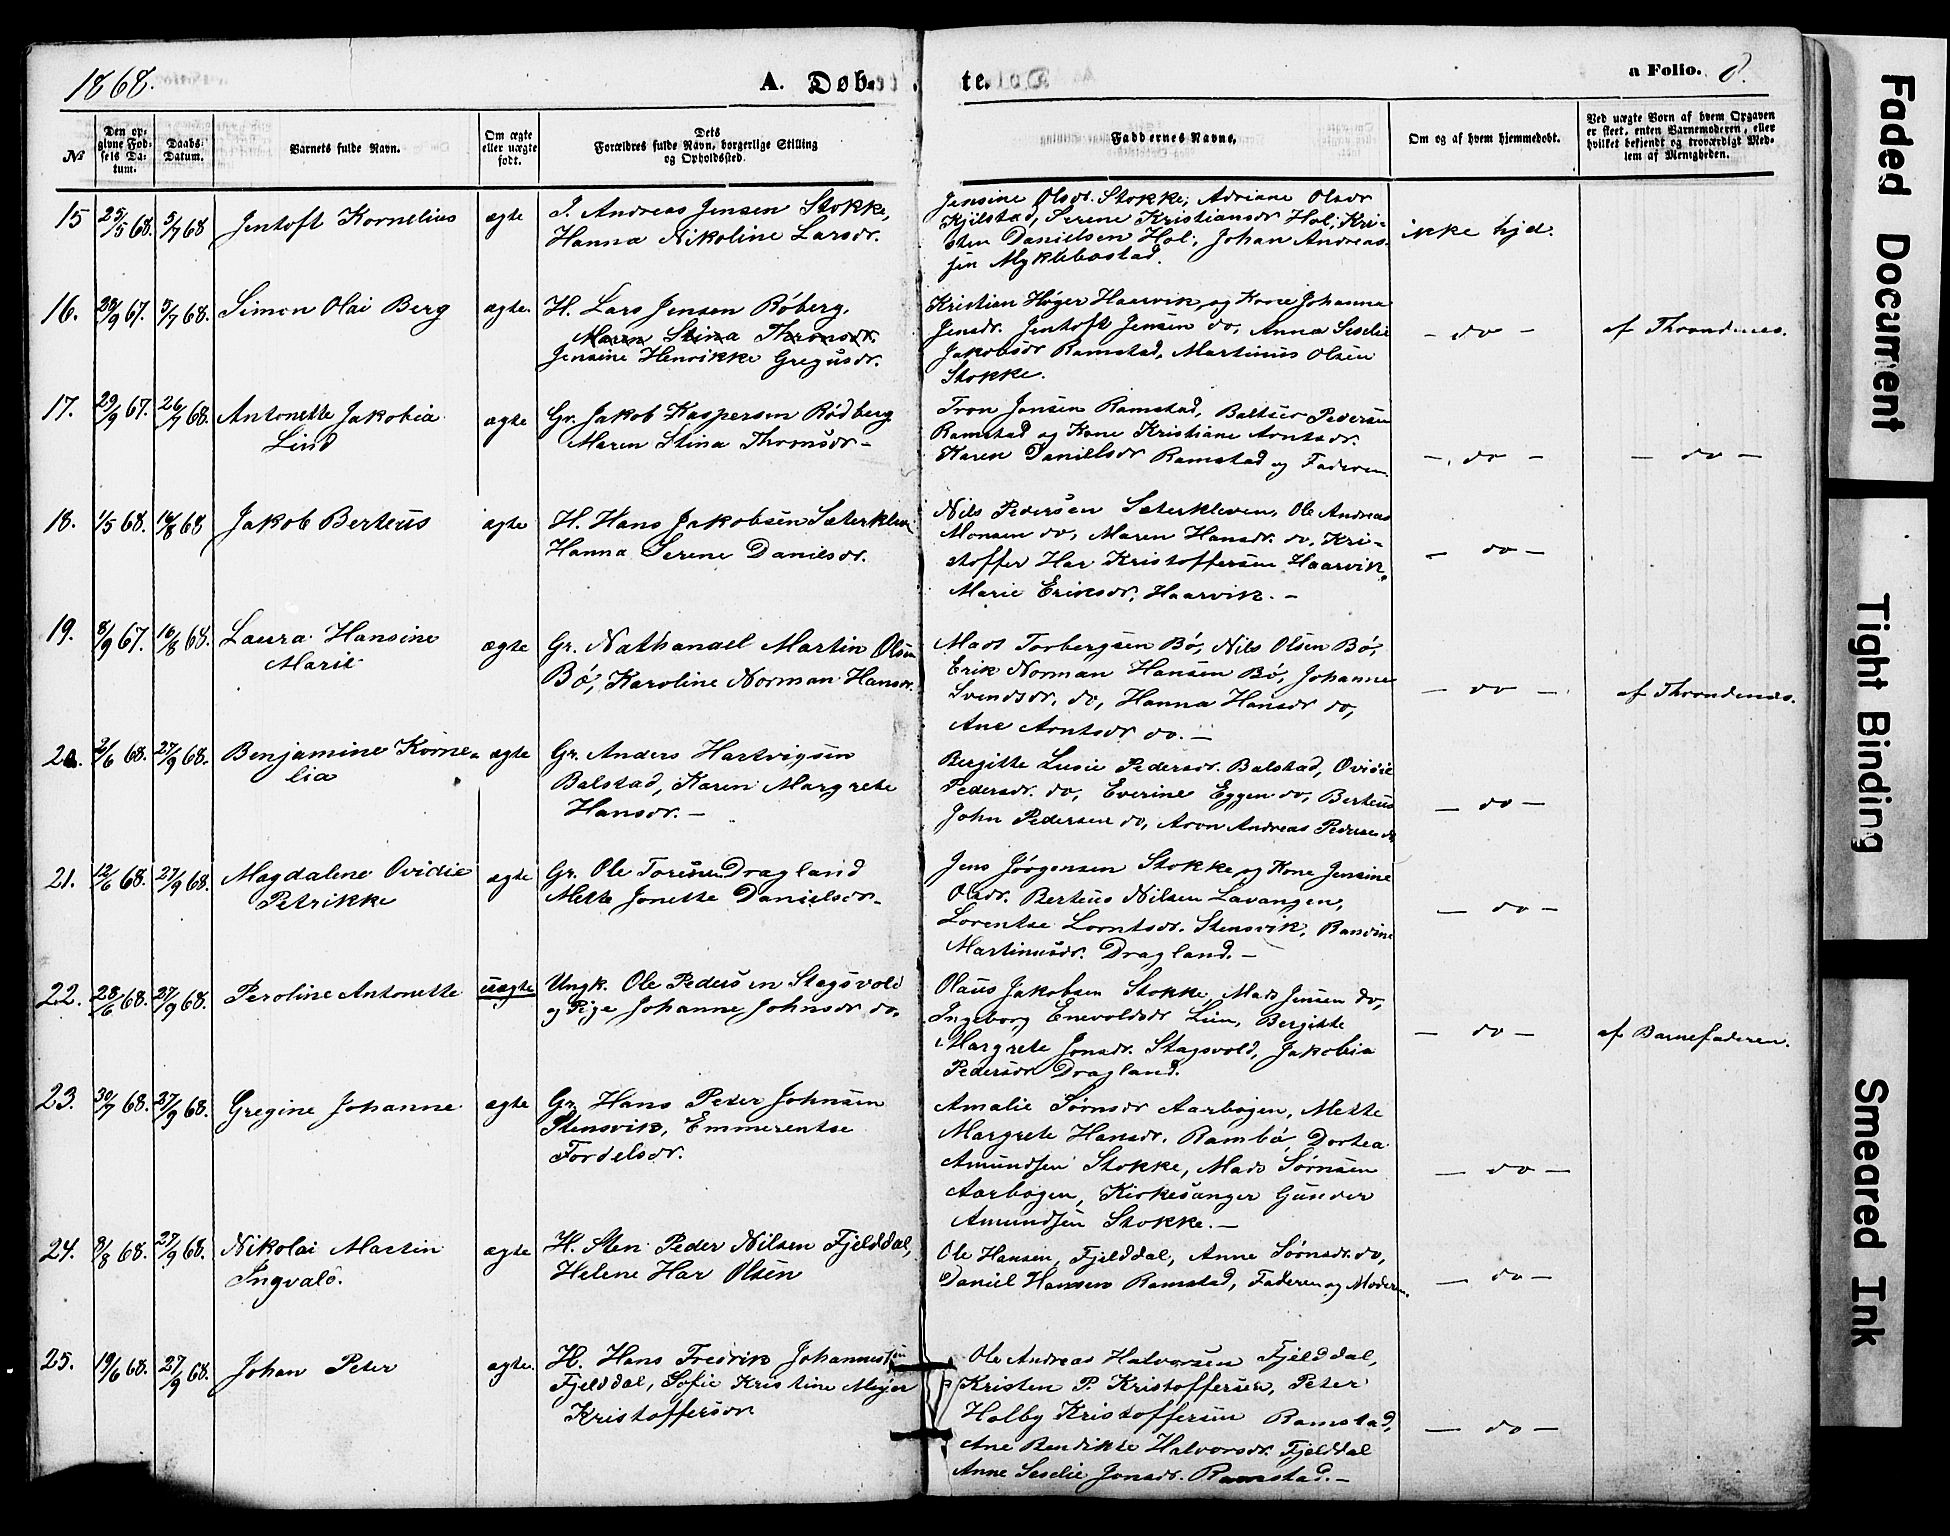 1868.
A. Døbte.
a Folio. 8.
№
Den opgivne Fødsels Datum.
Daabs Datum.
Barnets fulde Navn.
Om ægte eller uægte født.
Dets Forældres fulde Navn, borgerlige Stilling og Opholdssted.
Faddernes Navne.
Om og af hvem hjemmedøbt.
Ved uægte Børn af hvem Opgaven er skeet, enten Barnemoderen, eller hvilket bekjendt og troværdigt Medlem af Menigheden.
15 25/5 68. 5/7 68 Jentoft Kornelius ægte
J. Andreas Jensen Stokke,
Hanna Nikoline Larsdr.
Jensine Olsdr. Stokke, Adriane Olsdr
Kjilstad, Serene Kristiansdr Hol, Kri-
sten Danielsen Hol, Johan Andreas-
sen Myklebostad.
ikke hjd.
16. 20/9 67. 5/7 68. Simon Olai Berg ægte.
H. Lars Jensen Røberg.
Maren Stina Thronsdr.
Jensine Henrikke Gregusdr.
Kristian Høger Haarvik og Kone Johanna
Jensdr. Jentoft Jensen do, Anna Seselie
Jakobsdr Ramstad, Martinus Olsen
Stokke.
- do -
af Throndenæs.
17. 29/9 67. 26/7 68. Antonette Jakobia
Lind
ægte
Gr. Jakob Kaspersen Rødberg
Maren Stina Thronsdr -
Tron Jensen Ramstad, Baltser Pedersen
Ramstad og Kone Kristiane Arntsdr.
Karen Danielsdr Ramstad og Faderen
- do -
- do -
18. 1/5 68. 16/8 68 Jakob Berteus ægte
H. Hans Jakobsen Sæterkleven
Hanna Serene Danielsdr.
Nils Pedersen Sæterkleven, Ole Andreas
Monsen do, Maren Hansdr. do, Kri-
stoffer Har Kristoffersen Haarvik,
Marie Eriksdr. Haarvik. -
- do -
19. 8/9 67. 16/8 68. Laura Hansine
Marie
ægte
Gr. Nathanael Martin Olsen
Bø, Karoline Norman Hansdr.
Mads Torbergsen Bø, Nils Olsen Bø,
Erik Norman Hansen Bø, Johanne
Svendsdr. do, Hanna Hansdr do,
Ane Arntsdr do. -
- do -
af Throndenæs.
20. 2/6 68. 27/9 68. Benjamine Korne-
lia
ægte
Gr. Anders Hartvigsen
Balstad, Karen Margrete
Hansdr. -
Bergitte Lusie Pedersdr. Balstad, Ovidie
Pedersdr. do, Everine Eggen do, Berteus
John Pedersen do, Aron Andreas Pedersen do
- do -
21. 12/6 68. 27/9 68. Magdalene Ovidie
Petrikke
ægte
Gr. Ole Toresen Dragland
Mette Jonette Danielsdr.
Jens Jørgensen Stokke og Kone Jensine
Olsdr. Berteus Nilsen Lavangen,
Lorentse Lorntsdr. Stensvik, Randine
Martinusdr. Dragland. -
- do -
22. 28/6 68. 27/9 68. Peroline Antonette uægte
Ungk. Ole Pedersen Stagsvold
og Pige Johanne Johnsdr do.
Olaus Jakobsen Stokke, Mads Jensen do,
Ingeborg Enevoldsdr Lien, Bergitte
Margrete Jonsdr. Stagsvold, Jakobia
Pedersdr Dragland.
- do -
af Barnefaderen.
23. 30/7 68. 27/9 68. Gregine Johanne ægte
Gr. Hans Peter Johnsen
Stensvik, Emmerentse
Fordelsdr.
Amalie Sørnsdr Aarbogen, Mette
Margrete Hansdr. Rambø, Dortea
Amundsen Stokke, Mads Sørnsen
Aarbogen, Kirkesanger Gunder
Amundsen Stokke. -
- do -
24. 8/8 68. 27/9 68. Nikolai Martin
Ingvald.
ægte
H. Sten Peder Nilsen Fjelddal,
Helene Har Olsen
Ole Hansen, Fjelddal, Anne Sørnsdr. do,
Daniel Hansen Ramstad, Faderen og Moderen.
- do -
25. 19/6 68. 27/9 68. Johan Peter ægte.
H. Hans Fredrik Johannessen
Fjelddal, Sofie Kristine Mejer
Kristoffersdr
Ole Andreas Halvorsen Fjelddal,
Kristen P. Kristoffersen, Peter
Holby Kristoffersen Ramstad,
Ane Bendikte Halvorsdr. Fjelddal
Anne Seselie Jonsdr. Ramstad. -
- do -
Faded Document
Tight Binding
Smeared Ink